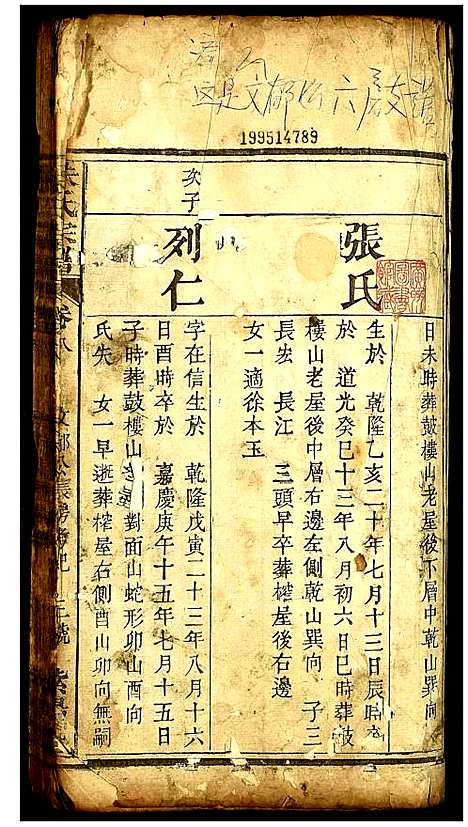 这是文郁公六房支譜
199514789
日未時葬鼓樓山老屋後下層中乾山巽向
張氏
生於 乾隆乙亥二十年七月十三日辰時卒
於 道光癸巳十三年八月初六日巳時葬鼓
樓山老屋後中層右邊左側乾山巽向 子三
長宏 長江 三頭早卒葬榨屋後右邊
女一適徐本玉
次子
列仁
字在信生於 乾隆戊寅二十三年八月十六
日酉時卒於 嘉慶庚午十五年七月十五日
子時葬鼓樓山 對面山蛇形卯山酉向
氏失 女一早逝葬榨屋右側酉山卯向無嗣
氏宗譜
卷 八